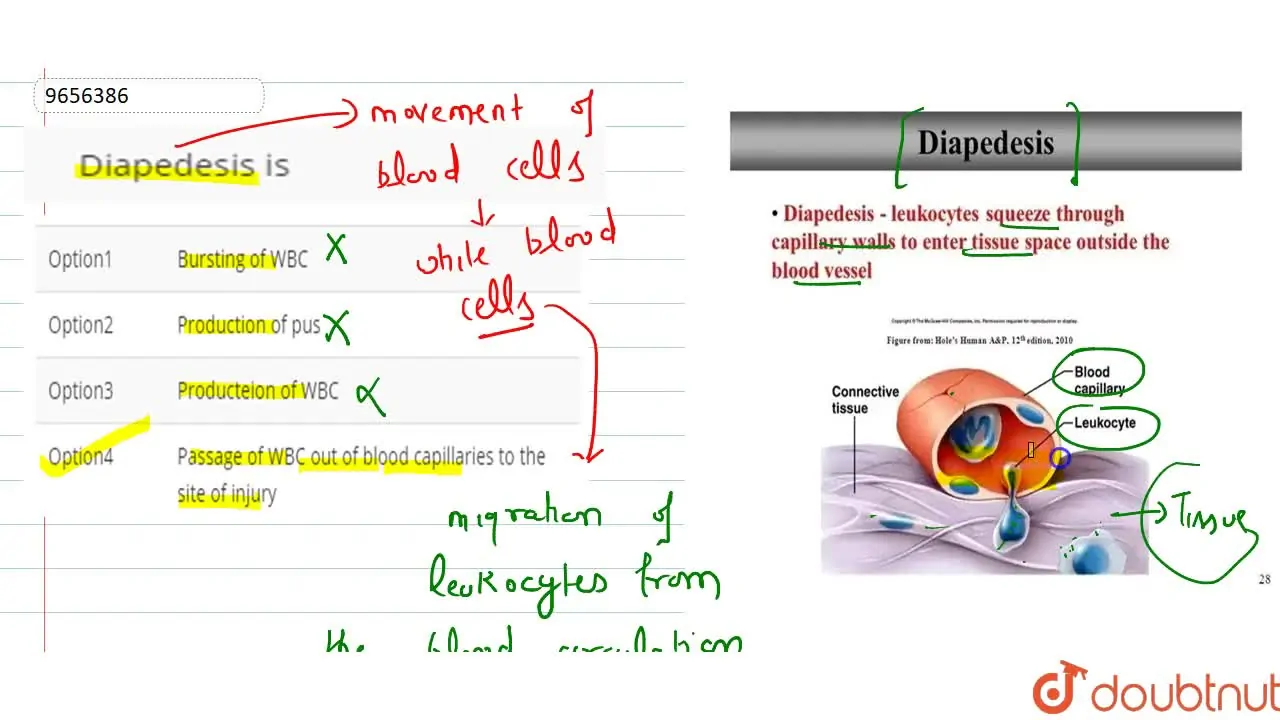 9656386
Diapedesis is
Option1 Bursting of WBC X
Option2 Production of pus X
Option3 Producteion of WBC
Option4 Passage of WBC out of blood capillaries to the
site of injury
movement of
blood cells
while blood
cells
migration of
leukocytes from
the blood circulation
Diapedesis
• Diapedesis - leukocytes squeeze through
capillary walls to enter tissue space outside the
blood vessel
Copyright © The McGraw-Hill Companies, Inc. Permission required for reproduction or display.
Figure from: Hole's Human A&P, 12th edition, 2010
Connective
tissue
Blood
capillary
Leukocyte
Tissue
28
doubtnut